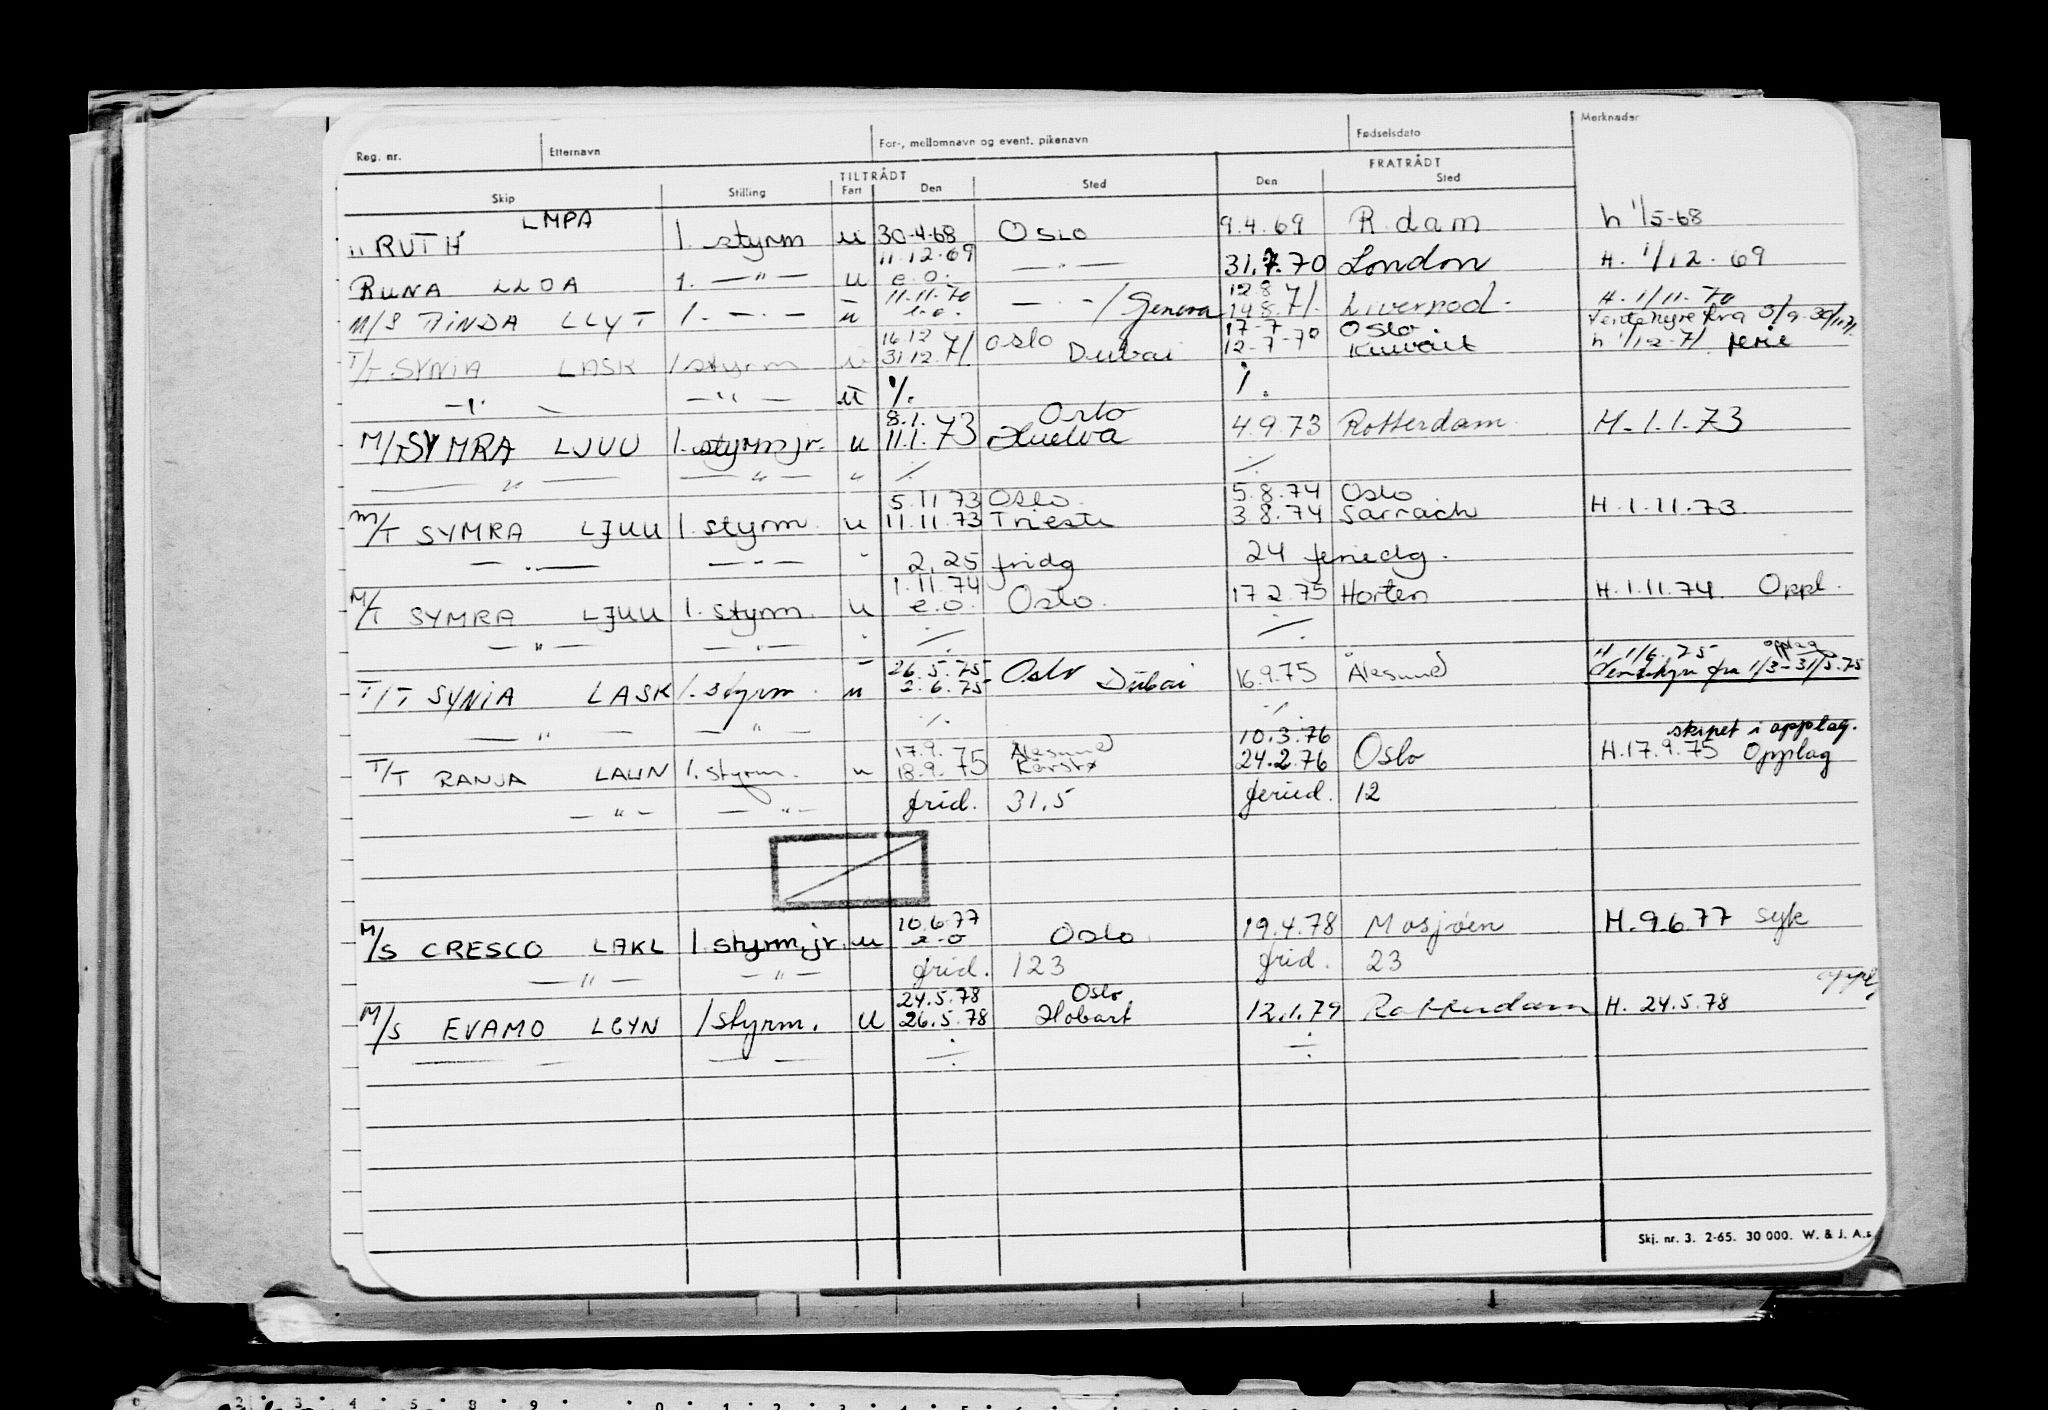 Reg. nr. Etternavn For-, mellomnavn og event. pikenavn Fødselsdato Merknader
TILTRÅDT FRATRÅDT
Skip Stilling Fart Den Sted Den Sted
LMPA
" RUTH 1. styrm u 30-4-68 Oslo 9.4.69 R.dam h 1/5-68
11.12.69
RUNA LLOA 1. — " — u e.o. — " — 31.7.70 London H. 1/12.69
11.11.70 12.8
M/S LLYT 1. — " — u e.o. — " — / Genova 14.8.71. Liverpool. H. 1/11.70
16.12 Oslo 17-7 Oslo
T/T SYNIA LASK 1 styrm u 31.12.71 Dubai 12-7-70 Kuwait h 1/12-71 ferie
— " — — " — u ./. ./.
8.1. Oslo
M/T SYMRA LJUU 1. styrm jr. u 11.1.73 Huelva 4.9.73 Rotterdam. H. 1.1.73
— " — — " — " ./. ./.
5.11.73 Oslo. 5.8.74 Oslo
M/T SYMRA LJUU 1. styrm. u 11.11.73 Trieste 3.8.74 H. 1.11.73.
— " — — " — " 2,25 fridg 24 feriedg.
1.11.74
M/T SYMRA LJUU 1. styrm. u e.o. Oslo. 17.2.75 Horten H. 1.11.74. Oppl.
— " — — " — " ./. ./.
26.5.75 H. 1/6.75 opplag
T/T SYNIA LASK 1. styrm. u 2.6.75 Oslo Dubai 16.9.75 Ålesund fra 1/3-31/5.75
— " — — " — ./. ./.
17.9. Ålesund 10.3.76 skipet i opplag.
T/T RANJA LAUN 1. styrm. u 18.9.75 Kårstø 24.2.76 Oslo H. 17.9.75 Opplag
— " — — " — frid. 31,5 feried. 12
10.6.77
M/S CRESCO LAKL 1. styrm. jr. u e.o Oslo. 19.4.78 Mosjøen H. 9.6.77 syk
— " — — " — frid. 123 frid. 23
24.5.78 Oslo
M/S EVAMO LGYN 1 styrm. u 26.5.78 Hobart 12.1.79 Rotterdam H. 24.5.78
— — — — ./. ./.
Skj. nr. 3. 2-65. 30 000. W. & J. A.s